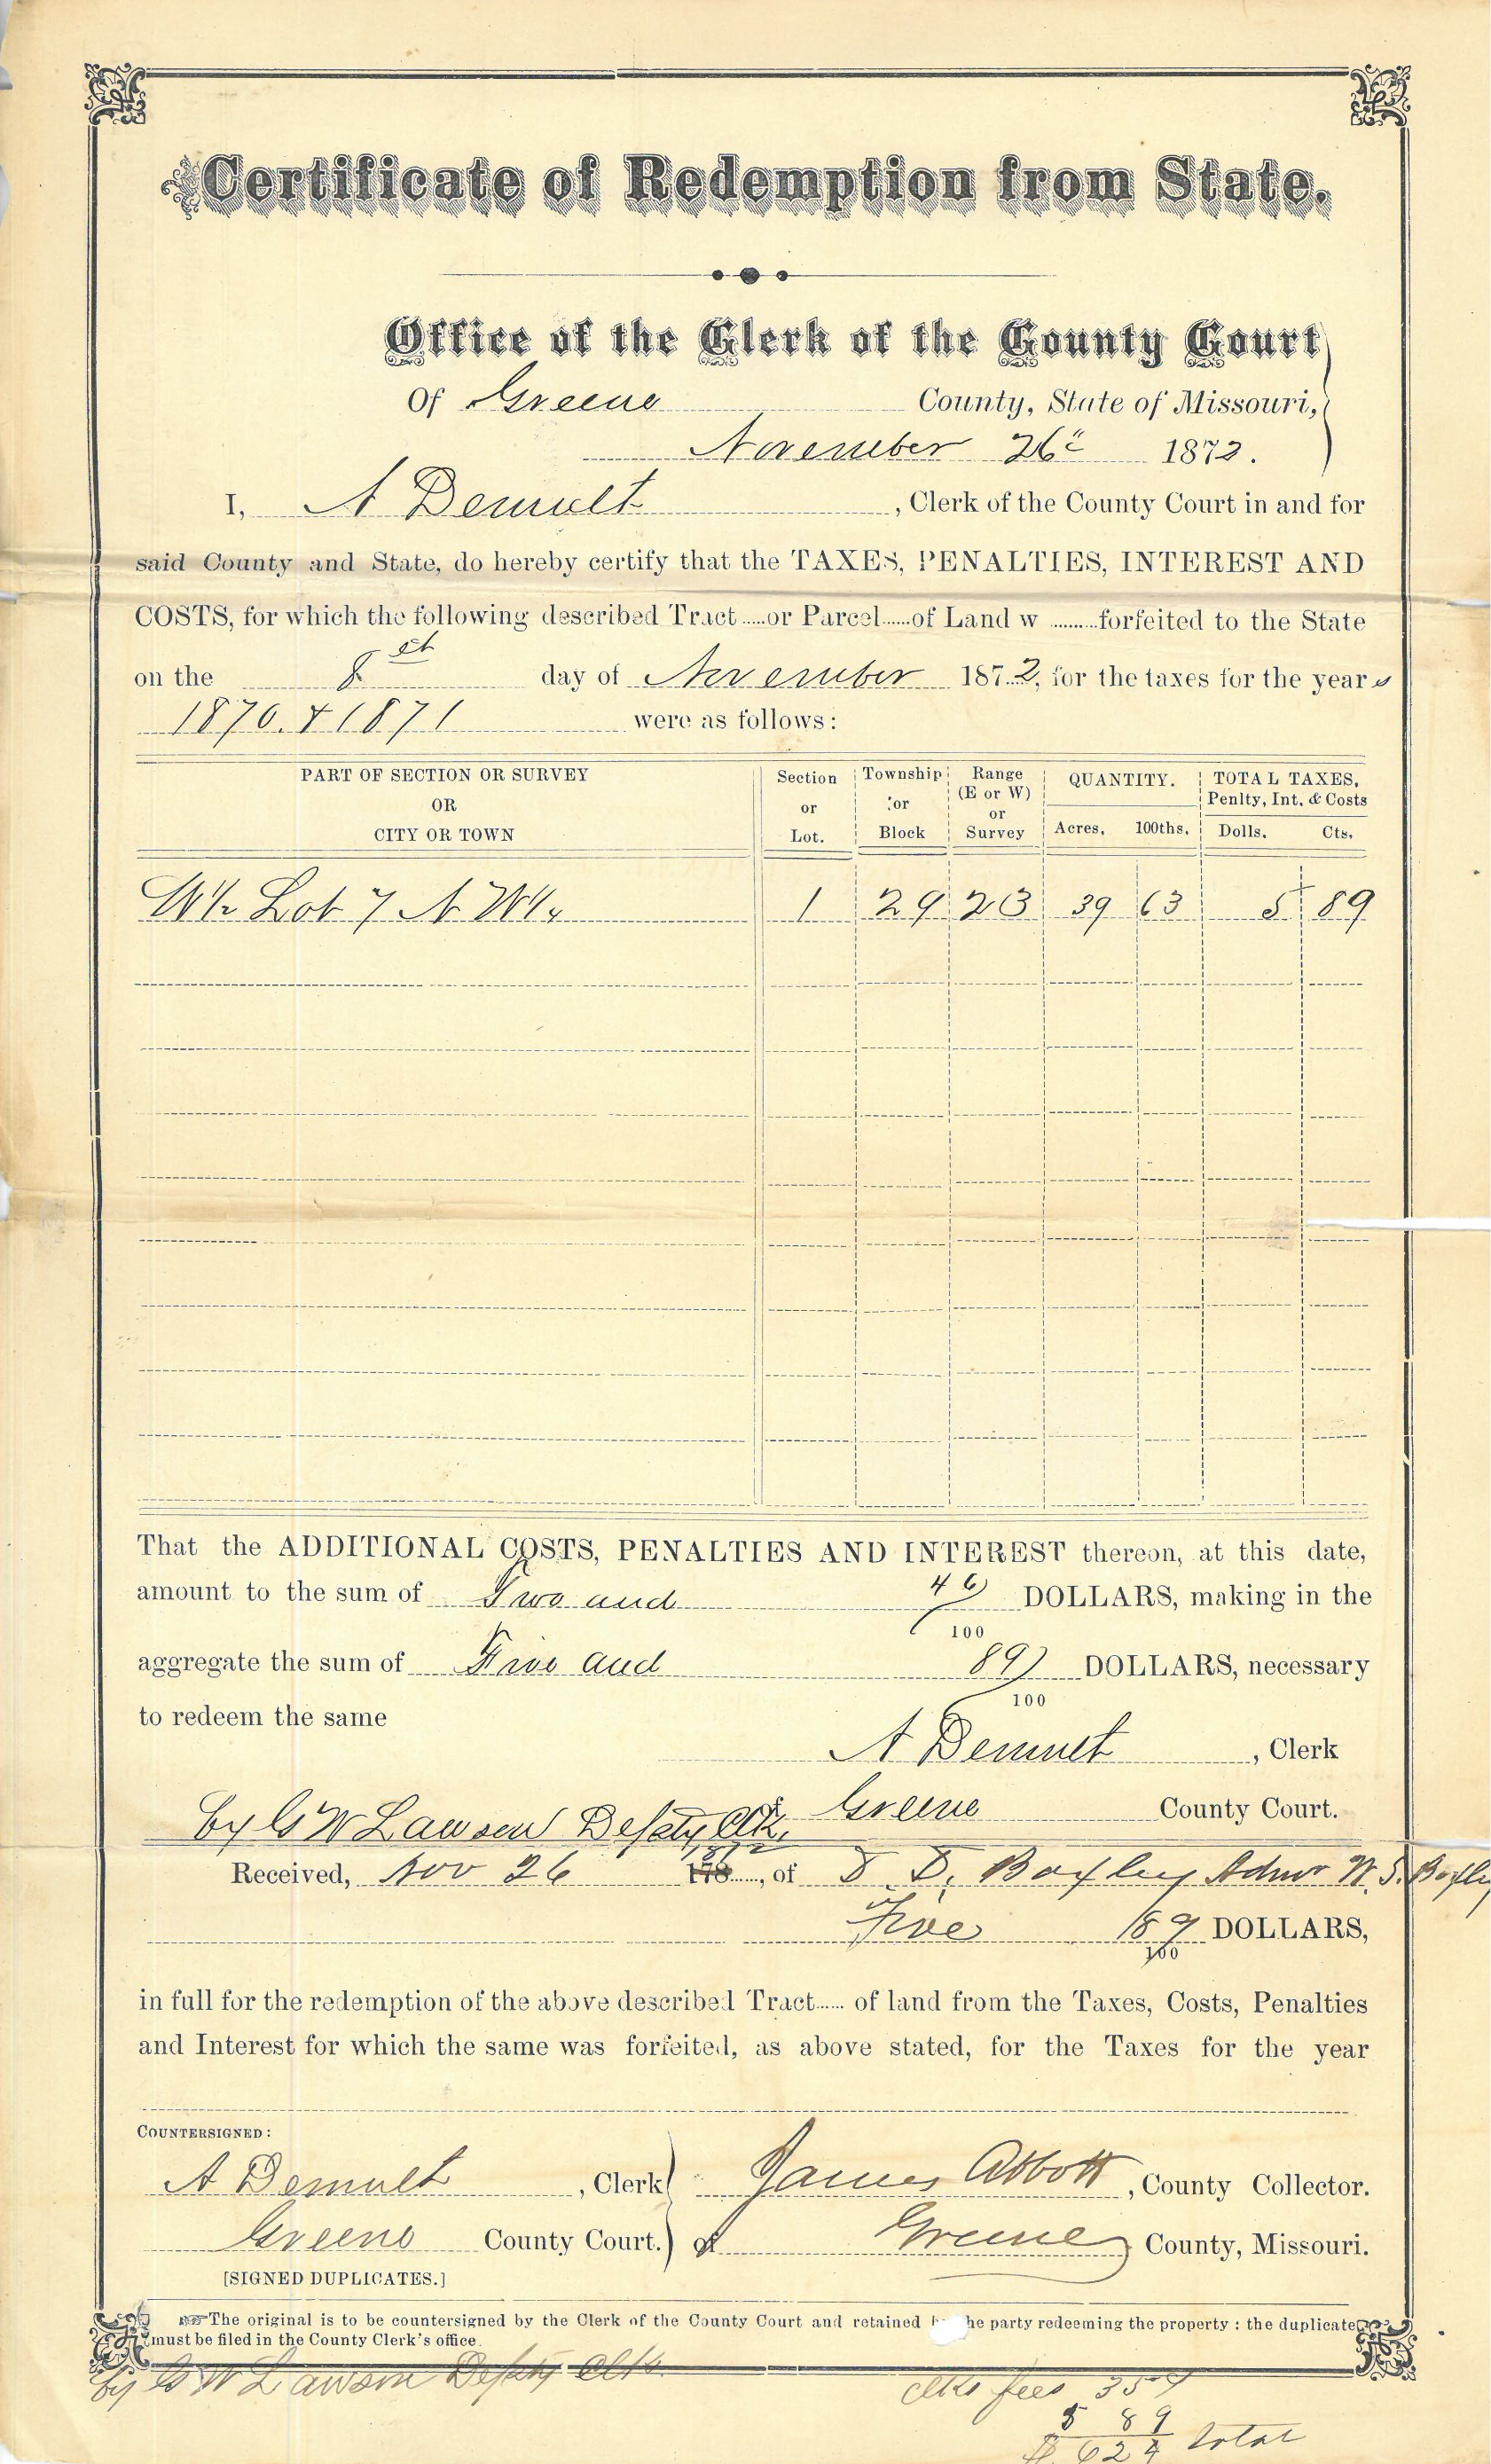 Certificate of Redemption from State.
Office of the Clerk of the County Court
Of Greene County, State of Missouri,
November 26" 1872.
I, A Demuth, Clerk of the County Court in and for
said County and State, do hereby certify that the TAXES, PENALTIES, INTEREST AND
COSTS, for which the following described Tract.....or Parcel.....of Land w.........forfeited to the State
on the 8 day of November 187..2, for the taxes for the years
1870. & 1871 were as follows:
PART OF SECTION OR SURVEY OR CITY OR TOWN
Section or Lot.
Township or Block
Range (E or W) or Survey
QUANTITY. Acres. 100ths.
TOTAL TAXES, Penlty, Int. & Costs Dolls. Cts.
W½ Lot 7 N W¼ 1 29 23 39 63 5 89
That the ADDITIONAL COSTS, PENALTIES AND INTEREST thereon, at this date,
amount to the sum of Two and 46/100 DOLLARS, making in the
aggregate the sum of Five and 89/100 DOLLARS, necessary
to redeem the same
A Demuth, Clerk
by G W Lawson Depty Clk. of Greene County Court.
Received, Nov 26 1872, of D. Boxley Admr W. S. Boxley
Five 89/100 DOLLARS,
in full for the redemption of the above described Tract..... of land from the Taxes, Costs, Penalties
and Interest for which the same was forfeited, as above stated, for the Taxes for the year
COUNTERSIGNED:
A Demuth, Clerk James Abbott, County Collector.
Greene County Court. of Greene County, Missouri.
[SIGNED DUPLICATES.]
☞The original is to be countersigned by the Clerk of the County Court and retained he party redeeming the property : the duplicate
must be filed in the County Clerk's office.
by G W Lawson Depty Clk.
Clks fees 35
5 89
$ 6 24 total